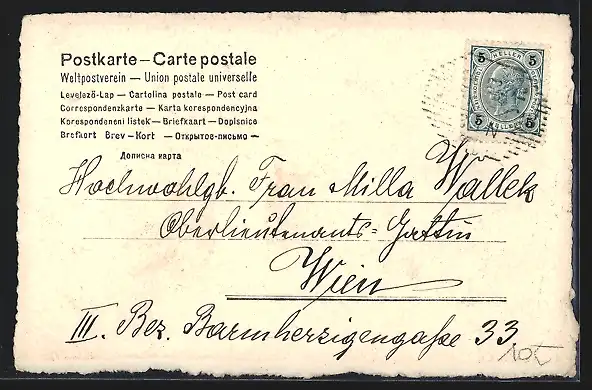 Postkarte — Carte postale
Weltpostverein — Union postale universelle
Levelező-Lap — Cartolina postale — Post card
Correspondenzkarte — Karta korespondencyjna
Korespondeneni listek — Briefkaart — Dopisnice
Brefkort Brev-Kort — Открытое-письмо —
Дописна карта
5 HELLER 5
5 5
Hochwohlgb. Frau Milla Wallek
Oberlieutenants=Gattin
Wien
III. Bez. Barmherzigengaße 33